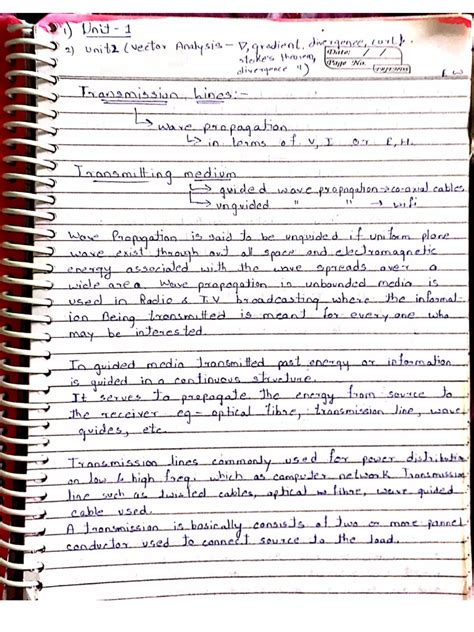 1) Unit - 1
2) Unit 2 (Vector Analysis - ∇, gradient, divergence, curl).
stoke's theorem,
divergence ")
Date: / /
Page No.
Transmission Lines:-
↳ wave propagation
↳ in terms of V, I or E, H.
Transmitting medium
↳ guided wave propagation → co-axial cables
↳ unguided " " → wifi
Wave Propgation is said to be unguided if uniform plane
wave exist through out all space and electromagnetic
energy associated with the wave spreads over a
wide area. Wave propagation in unbounded media is
used in Radio & T.V broadcasting where the informat-
ion Being transmitted is meant for everyone who
may be interested.
In guided media transmitted past energy or information
is guided in a continuous structure.
It serves to propogate the energy from source to
the receiver eg = optical fibre, transmission line, wave
guides, etc.
Transmission lines commonly used for power distributi
on low & high freq. which as computer network Transmission
line such as twisted cables, optical fibre, wave guided
cable used.
A transmission is basically consists of two or more
conductor used to connect source to the load.